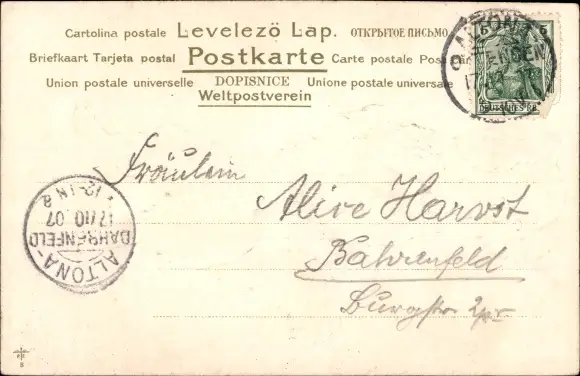 Cartolina postale Levelező Lap. ОТКРЫТОЕ ПИСЬМО
Briefkaart Tarjeta postal Postkarte Carte postale Post
Union postale universelle DOPISNICE Unione postale universale
Weltpostverein
5 5
DEUTSCHES REICH
17.10.
Fräulein
Alice Harvst
Bahrenfeld
Burgstr
ALTONA-
BAHRENFELD
17/10 07
12-1N.